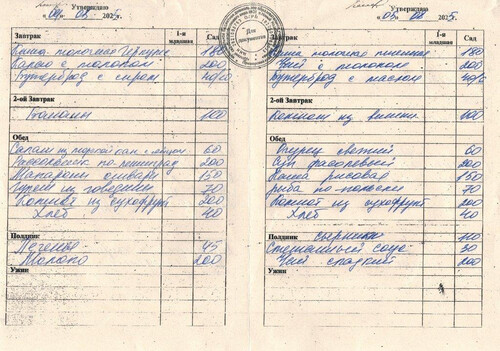 Утверждаю
«04» 06 2025г.
Завтрак
1-я младшая
Сад
Каша молочная Геркулес 180
Какао с молоком 200
Бутерброд с сыром 40/10
2-ой Завтрак
Бананы 100
Обед
Салат из морской кап. с яйцом 60
Рассольник по-ленинград 200
Макароны отварн 150
Гуляш из говядины 70
Компот из сухофрукт 200
Хлеб 40
Полдник
Печенье 45
Молоко 200
Ужин
Для документов
Утверждаю
«05» 06 2025г.
Завтрак
1-я младшая
Сад
Каша молочная пшенная 180
Чай с молоком 200
Бутерброд с маслом 40/
2-ой Завтрак
Компот из вишни
Обед
Огурец свежий 60
Суп фасолевый 200
Каша рисовая 150
Рыба по-польски 70
Компот из сухофрукт 200
Хлеб 40
Полдник сырники
соус 30
Чай сладкий 200
Ужин